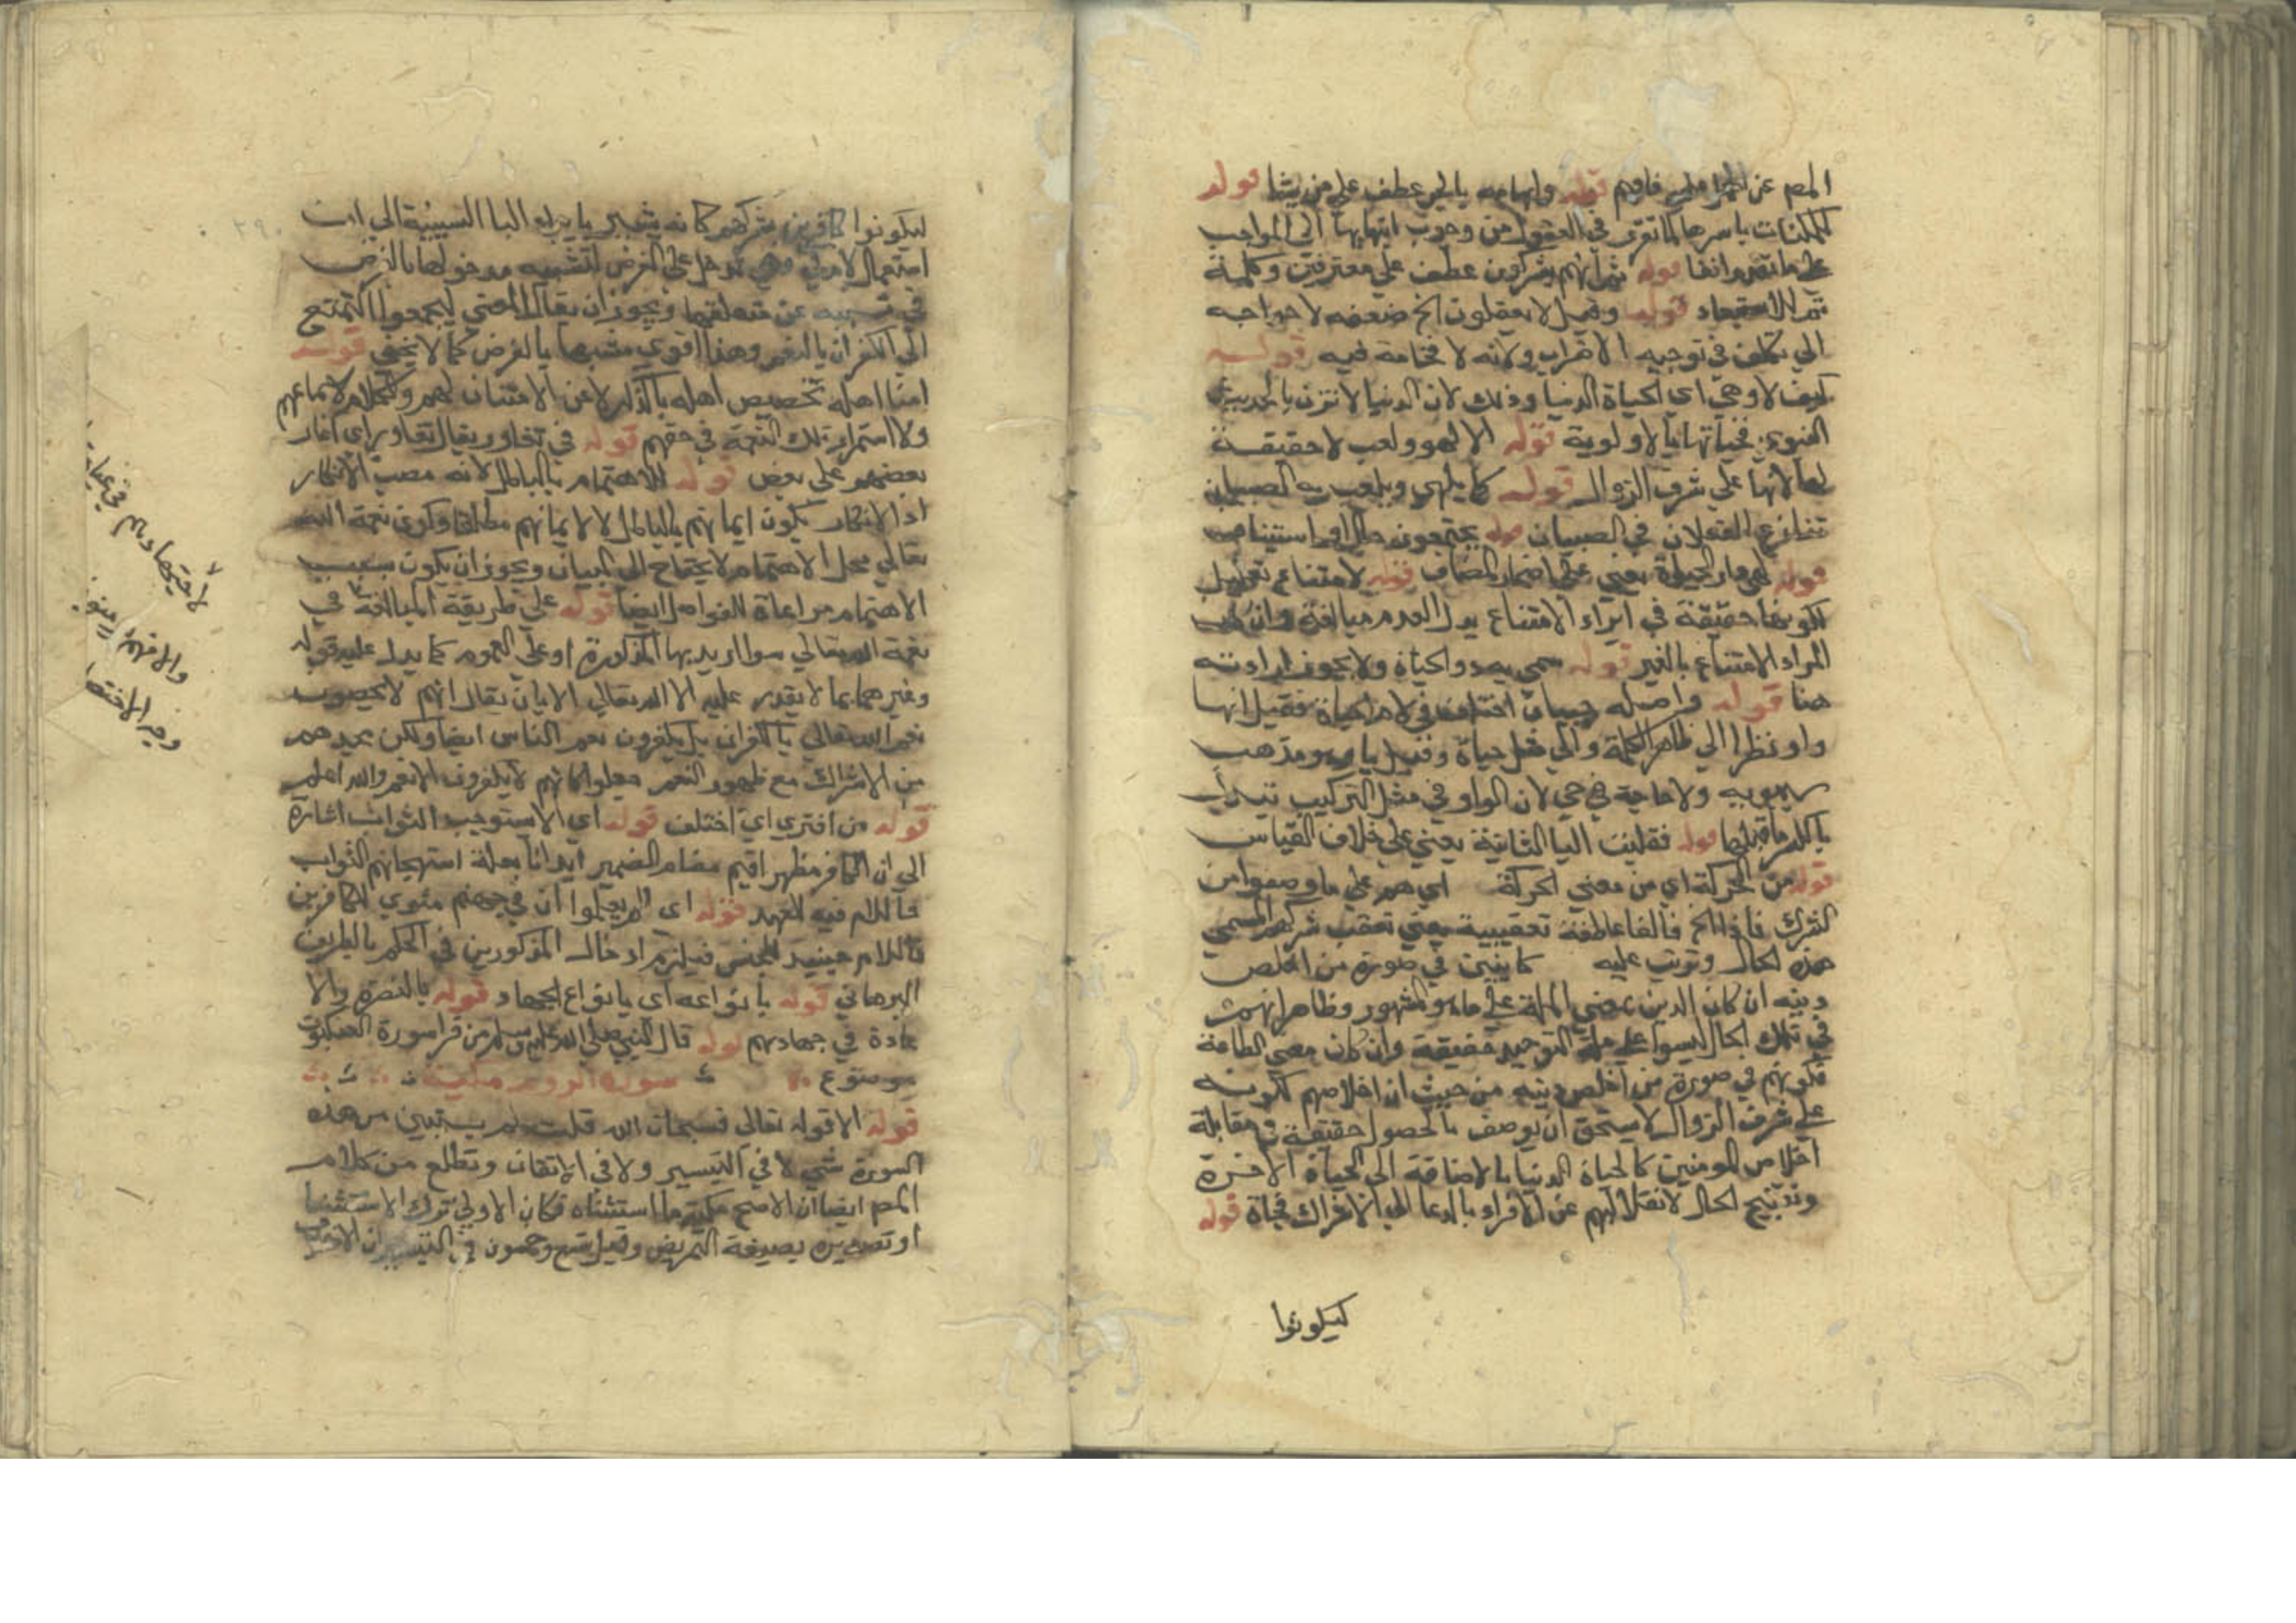 المص عن فافهم قوله وابهامه بالجر عطف علي من يشا قوله
للممكنات باسرها لما تقرر في العقول من وجوب انتهايها الي الواجب
علي ما تقدم انفا قوله ثم انهم يشركون عطف علي معترفين وكلمة
ثم للاستبعاد قوله وقيل لا يعقلون الخ ضعفه لاحواجه
الي تكلف في توجيه الاضراب ولانه لا فخامة فيه قوله
كيف لا وهي اي الحياة الدنيا وذلك لان الدنيا لا تزن
فحياتها بالاولوية قوله الا لهو ولعب لا حقيقة
لها لانها علي شرف الزوال قوله كما يلهي ويلعب به الصبيان
تنازع الفعلان في الصبيان قوله يجتمعون حال او استيناف
قوله لهي دار الحياة يعني علي اضمار المضاف قوله لامتناع
لكونها حقيقة في ايراد الامتناع بدل العدم مبالغة وان كان
المراد الامتناع بالغير قوله سمي به ذو الحياة ولا يجوز ارادته
هنا قوله واصله حييان اختلف في لام الحياة فقيل انها
واو نظرا الي ظاهر الكلمة والي مذهب
سيبويه ولا حاجة في حي لان الواو في مثل التركيب تبدل
يا لكسر ما قبلها قوله فقلبت اليا الثانية يعني علي خلاف القياس
قوله من الحركة اي من معني الحركة اي هم علي ما وصفوا من
الشرك فاذا الخ فالفا عاطفة تعقيبية يعني تعقب شركهم المسمي
هذه الحال وترتب عليه كاينين في صورة من اخلص
دينه ان كان الدين بمعني الملة علي ما هو المشهور وظاهر انهم
في تلك الحال ليسوا علي ملة التوحيد حقيقة وان كان معني الطاعة
فكونهم في صورة من اخلص دينه من حيث ان اخلاصهم لكونه
علي شرف الزوال لا يستحق ان يوصف بالحصول حقيقة في مقابلة
اخلاص المومنين كالحياة الدنيا بالاضافة الي الحياة الاخرة
الحال لانقلابهم عن بالدعا الي الاشراك فجاة قوله
ليكونوا
ليكونوا كافرين بشركهم كانه يشير اليا السببية الي ان
استعمال لام كي وهي تدخل علي الغرض لتشبيه مدخولها بالغرض
في عن متعلقها ويجوز ان يقال المعني ليجمعوا التمتع
الي الكفران بالنعم وهذا اقوي مشبها بالغرض كما لا يخفي قوله
امنا اهله تخصيص اهله بالذكر لان الامتنان لهم
ولاستمرار تلك النعمة في حقهم قوله في تغاور يقال تغاور اي اغار
بعضهم علي بعض قوله للاهتمام بالباطل لانه مصب الانكار
اذ الانكار يكون ايمانهم بالباطل لا لايمانهم مطلقا وكون نعمة الله
تعالي محل الاهتمام لا يحتاج الي البيان ويجوز ان يكون بسبب
الاهتمام مراعاة للفواصل ايضا قوله علي طريقة المبالغة في
نعمة الله تعالي سوا اريد بها المذكورة او علي العموم كما يدل عليه قوله
وغيرهما مما لا يقدر عليه الا الله تعالي الا بان يقال انهم لا يخصون
نعم الله تعالي بالكفران بل يكفرون نعم الناس ايضا ولكن
من الاشراك مع ظهور النعم جعلوا كانهم لا يكفرون الا نعم والله اعلم
قوله من افتري اي اختلق قوله اي الا يستوجب الثواب اشارة
الي ان الكافر مظهر اقيم مقام الضمير ايذانا بعلة الثواب
فاللام فيه للعهد قوله اي الم يعلموا ان في جهنم مثوي للكافرين
فاللام حينيذ للجنس فيلزم ادخال المذكورين في الحكم بالطريق
البرهاني قوله بانواعه اي بانواع الجهاد قوله بالنصرة والا
عادة في جهادهم قوله قال النبي صلي الله عليه وسلم من قرا سورة العنكبوت
موضوع سورة الروم مكية
قوله الا قوله تعالي فسبحان الله قلت لم يستبين من هذه
السورة شي لا في التيسير ولا في الاتقان وتطلع من كلام
المص ايضا ان الاصح مكية ما استثناه فكان الاولي ترك الاستثنا
او تصديره بصيغة التمريض وقيل تسع وخمسون في التيسير ان